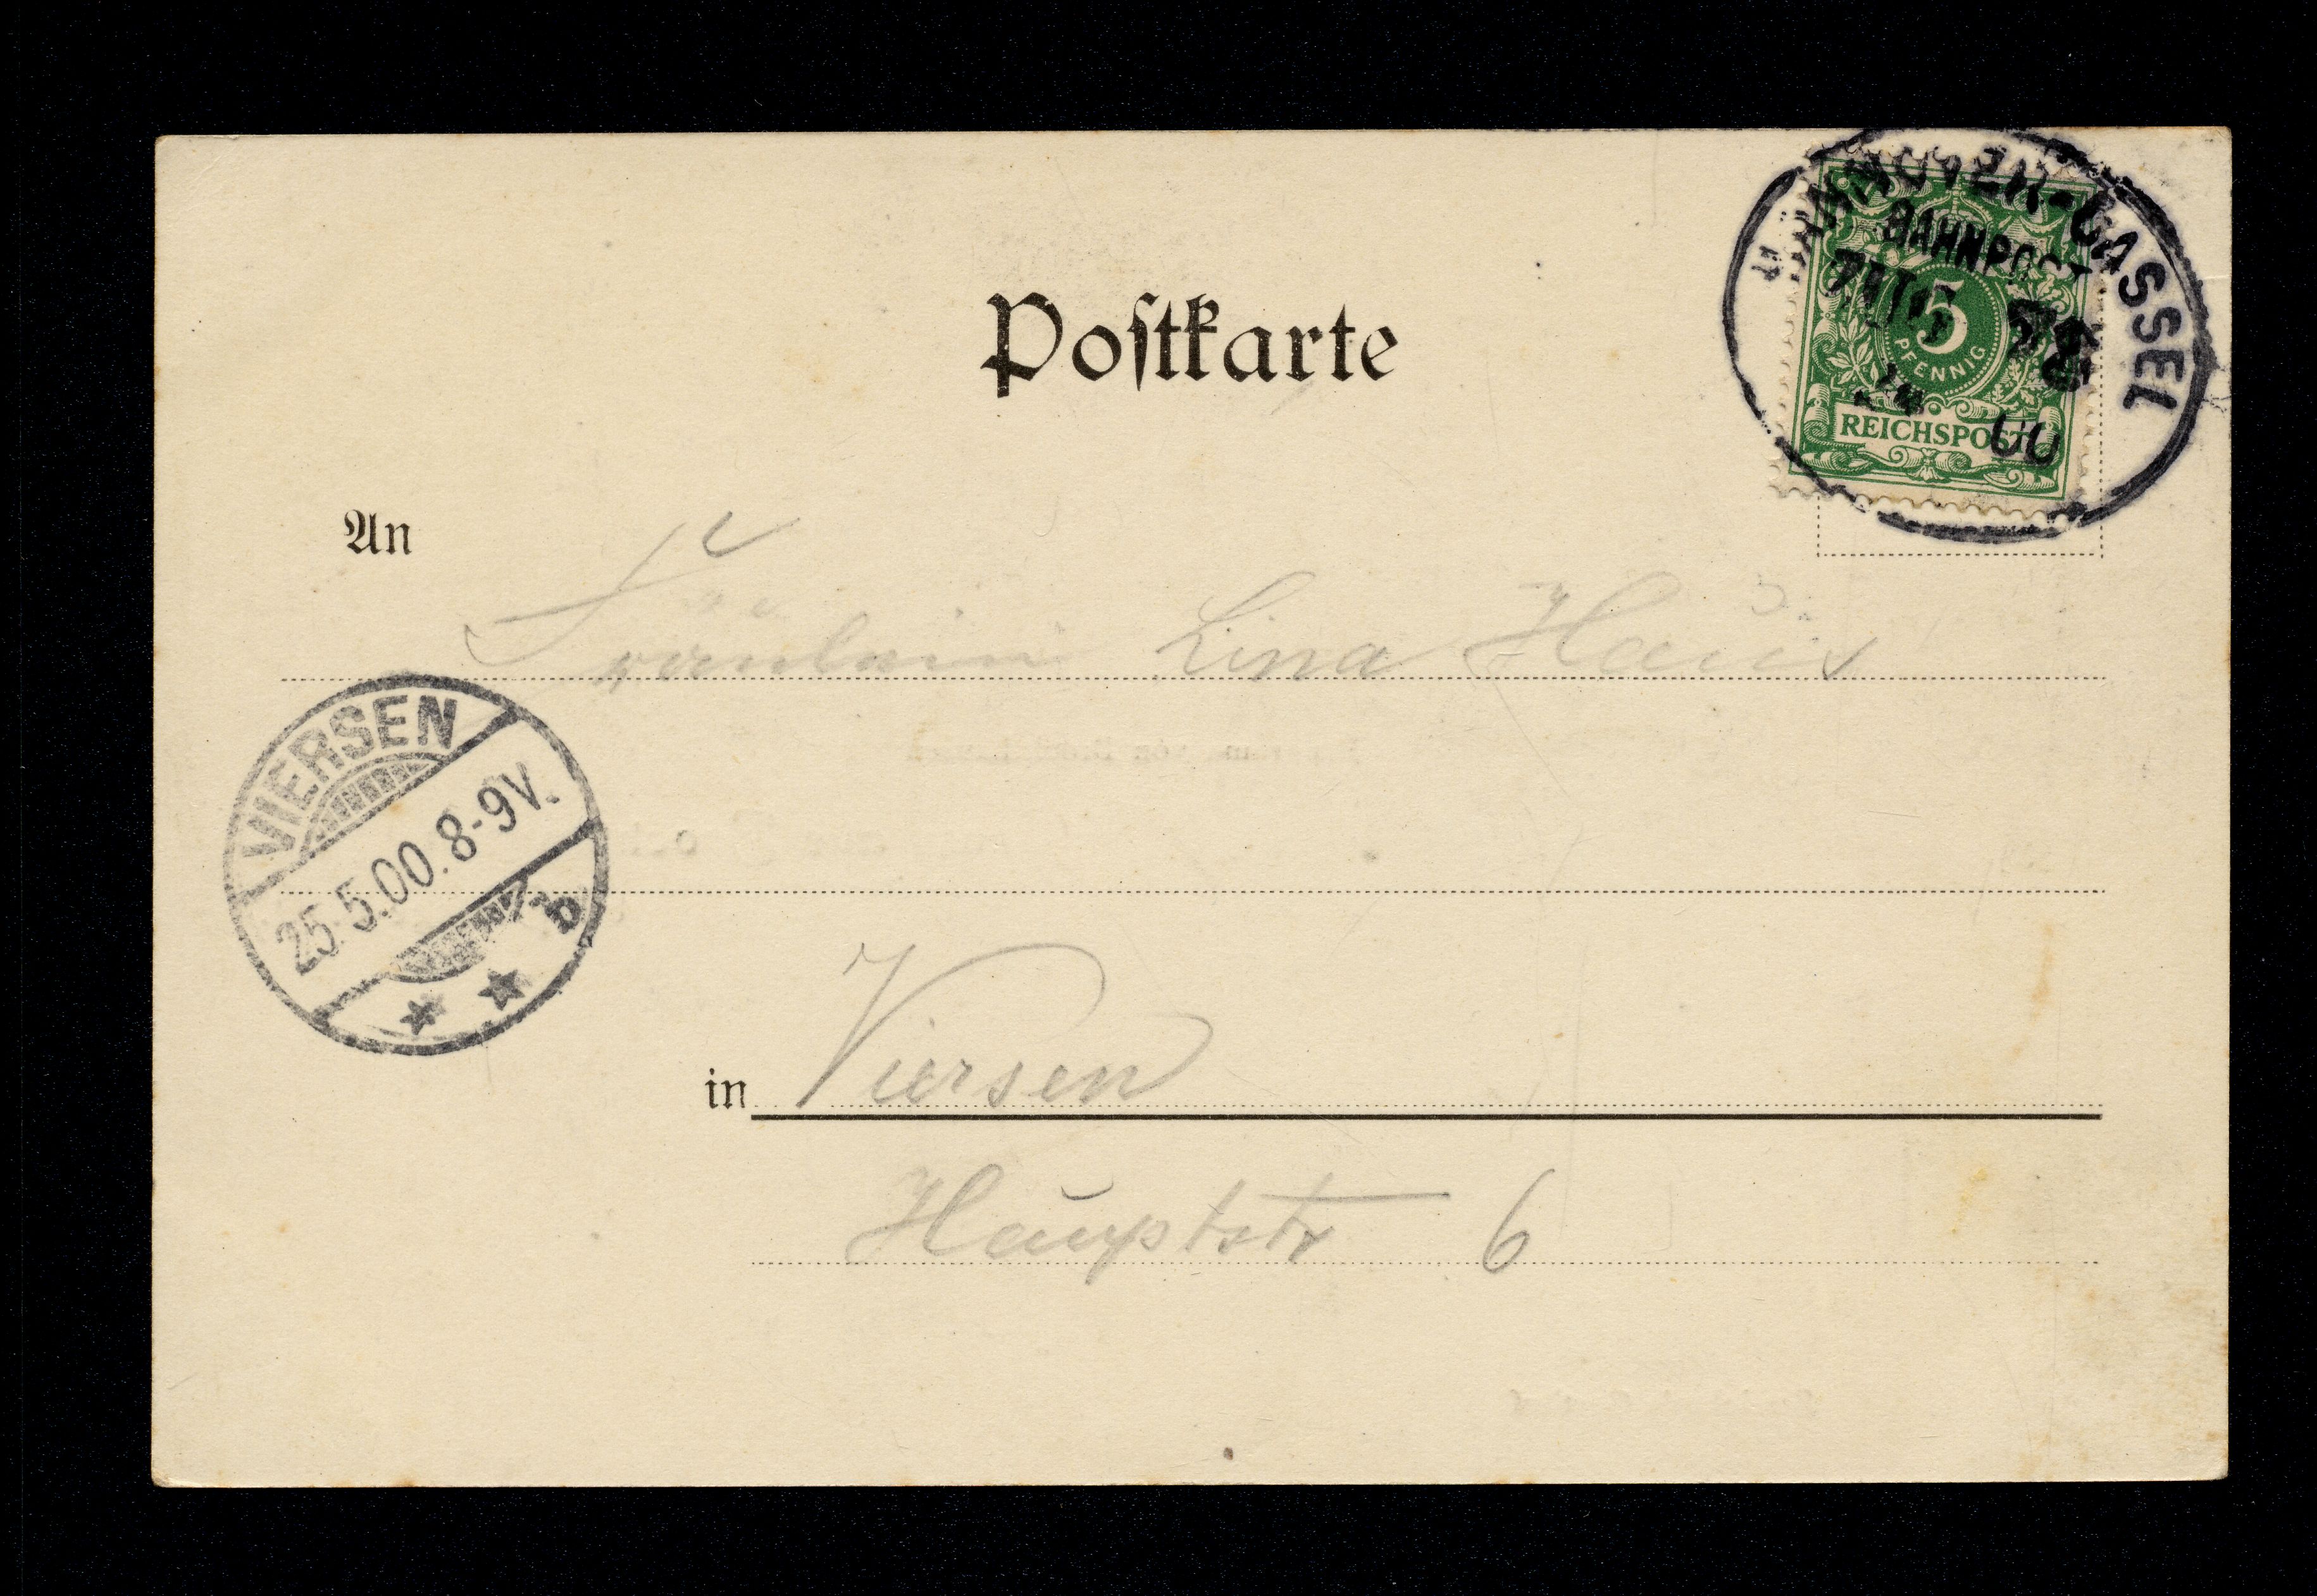 HANNOVER-CASSEL
BAHNPOST
ZUG
00
5
PFENNIG
REICHSPOST
Postkarte
An
Fräulein Lina Haus
VIERSEN
25.5.00.8-9V.
b
in Viersen
Hauptstr 6